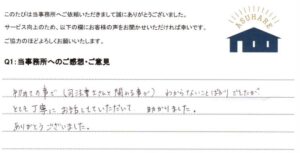 このたびは当事務所へご依頼いただきまして誠にありがとうございました。
サービス向上のため、以下の欄にお客様の声をお聞かせいただければ幸いです。
ご協力のほどよろしくお願いいたします。
ASUHARE
Q1：当事務所へのご感想・ご意見
初めての事で（司法書士さんと関わる事が）わからないことばかりでしたが
とても丁寧にお話ししていただいて 助かりました。
ありがとうございました。